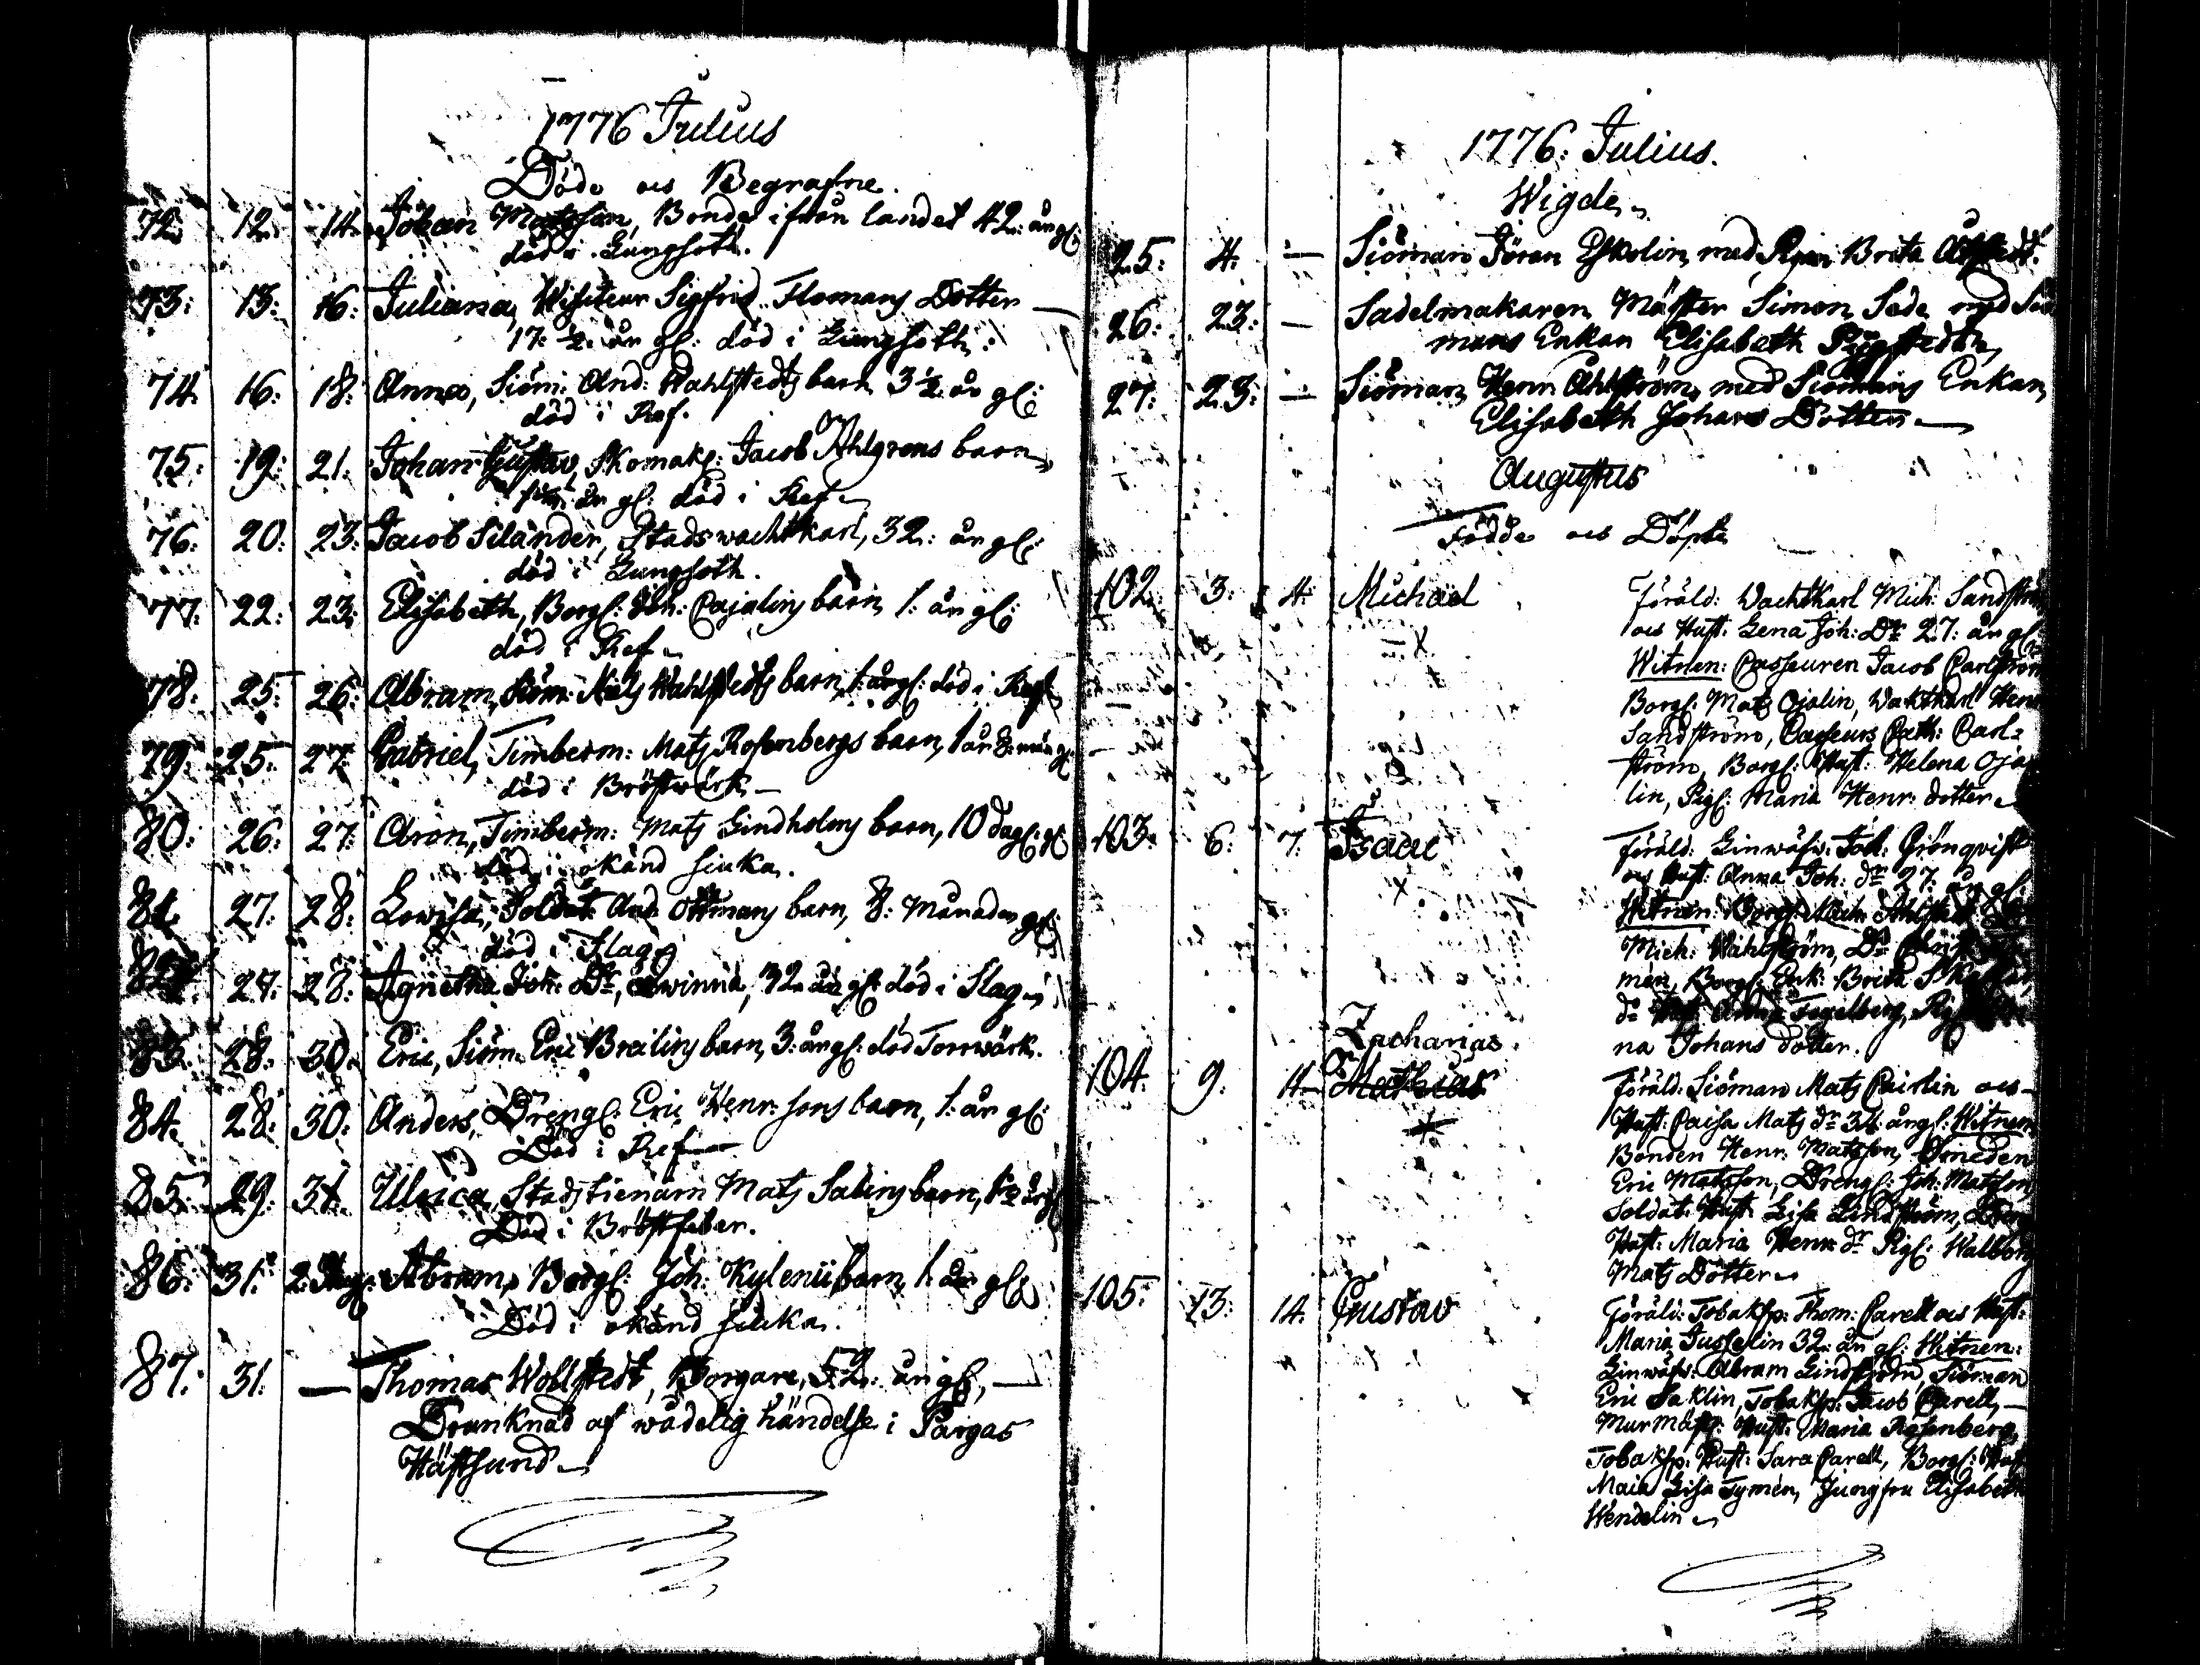 1776 Julius
Döde och Begrafne.
72. 12. 14. Johan Matsson, Bonde ifrån landet 42: år gl:
död i Lungsoth.
73: 13: 16: Juliana, Wisiteur Sigfrid Flomans Dotter
17: ½: år gl: död i Lungsoth:
74. 16. 18: Anna, Siöm: And: Wahlstedts barn 3½ år gl:
död i Ref.
75. 19: 21. Johan Gustav, Skomak: Jacob Ahlgrens barn
år gl: död i Ref
76: 20: 23: Jacob Silander, Stadswachtkarl, 32: år gl:
död i Lungsoth.
77. 22: 23: Elisabeth, Borgl: Joh: Cajalins barn 1: år gl:
död i Ref
78. 25: 26: Abram, Siöm: Mats Wahlstedts barn, 1: år gl: död i Ref
79: 25. 27. Gabriel, Timberm: Mats Rosenbergs barn, 1 år 8: mån gl:
död i Bröstwärk
80: 26: 27: Aron, Timberm: Mats Lindholms barn, 10 dagl: gl:
död i okänd siuka.
81. 27: 28: Lowisa, Soldat: And: Ottmans barn, 8: Månader gl:
död i Slag
82. 27: 28: Agnetha Joh: Dr, Qwinna, 32: år gl: död i Slag
83. 28: 30. Eric, Siöm: Eric Breilins barn, 3: år gl: död Torrwärk.
84. 28: 30: Anders, Drengl: Eric Henr: sons barn, 1: år gl:
Död i Ref
85: 29: 31. Ulrica, Stadstienarn Mats Salins barn, 1½ år gl
Död i Bröstfeber.
86: 31: 2: Aug: Abram, Borgl: Joh: Kylenii barn, 1: år gl:
Död i okänd siuka.
87: 31: — Thomas Wollstedt, Borgare, 52: år gl, —
Drunknad af wådelig händelse i Pargas
Hästsund
1776: Julius.
Wigde
25: 4. — Siöman Jöran Eskolin, med Pigan Brita
26: 23: — Sadelmakaren Mäster Simon Sade med Siö
mans Enkan Elisabeth
27: 23: — Siöman Henr: Ahlström, med Siömans Enkan
Elisabeth Johans Dotter
Augustus
Födde och Döpte
102. 3: 4: Michael Föräld: Wachtkarl Mich: Sandström
och Hust: Lena Joh: Dr 27: år gl:
Witnen: Casseuren Jacob Carlström
Borgl: Mats Ojalin, Waktkarl Henr
Sandström, Casseurs Cath: Carl=
ström, Borgl: Hust: Helena Oja
lin, Pigl: Maria Henr: dotter
103: 6: 7: Isaac Föräld: Linwäfw: Joh: Grönqvist
och Hust: Anna Joh: dr 27: år gl:
Witnen: Borgl: Mich: Ahlstedt
Mich: Wahlström, Dr
men, Borgl: Enk: Brita
dr Hust: Anna Fogelberg, Pig
na Johans dotter.
Zacharias.
104. 9. 11. Mathias Föräld: Siöman Mats Cairlin och
Hust: Caisa Mats dr 36: år gl: Witnen
Bonden Henr: Matsson, Smeden
Eric Matsson, Drengl: Joh: Matsson
Soldat: Hust: Lisa Lindström, Dreng
Hust: Maria Henr: dr Pigl: Walborg
Mats Dotter
105: 13: 14. Gustav Föräld: Tobaksp: Thom: Carell och Hust:
Maria Juselin 32: år gl: Witnen:
Linwäfw: Abram Lindström, Siöman
Eric Saklin, Tobaksp: Jacob Carell,
Murmäst: Hust: Maria Rosenberg,
Tobaksp: Hust: Sara Carell, Borgl: Hust
Maia Lisa Tymen, Jungfru Elisabeth
Wendelin